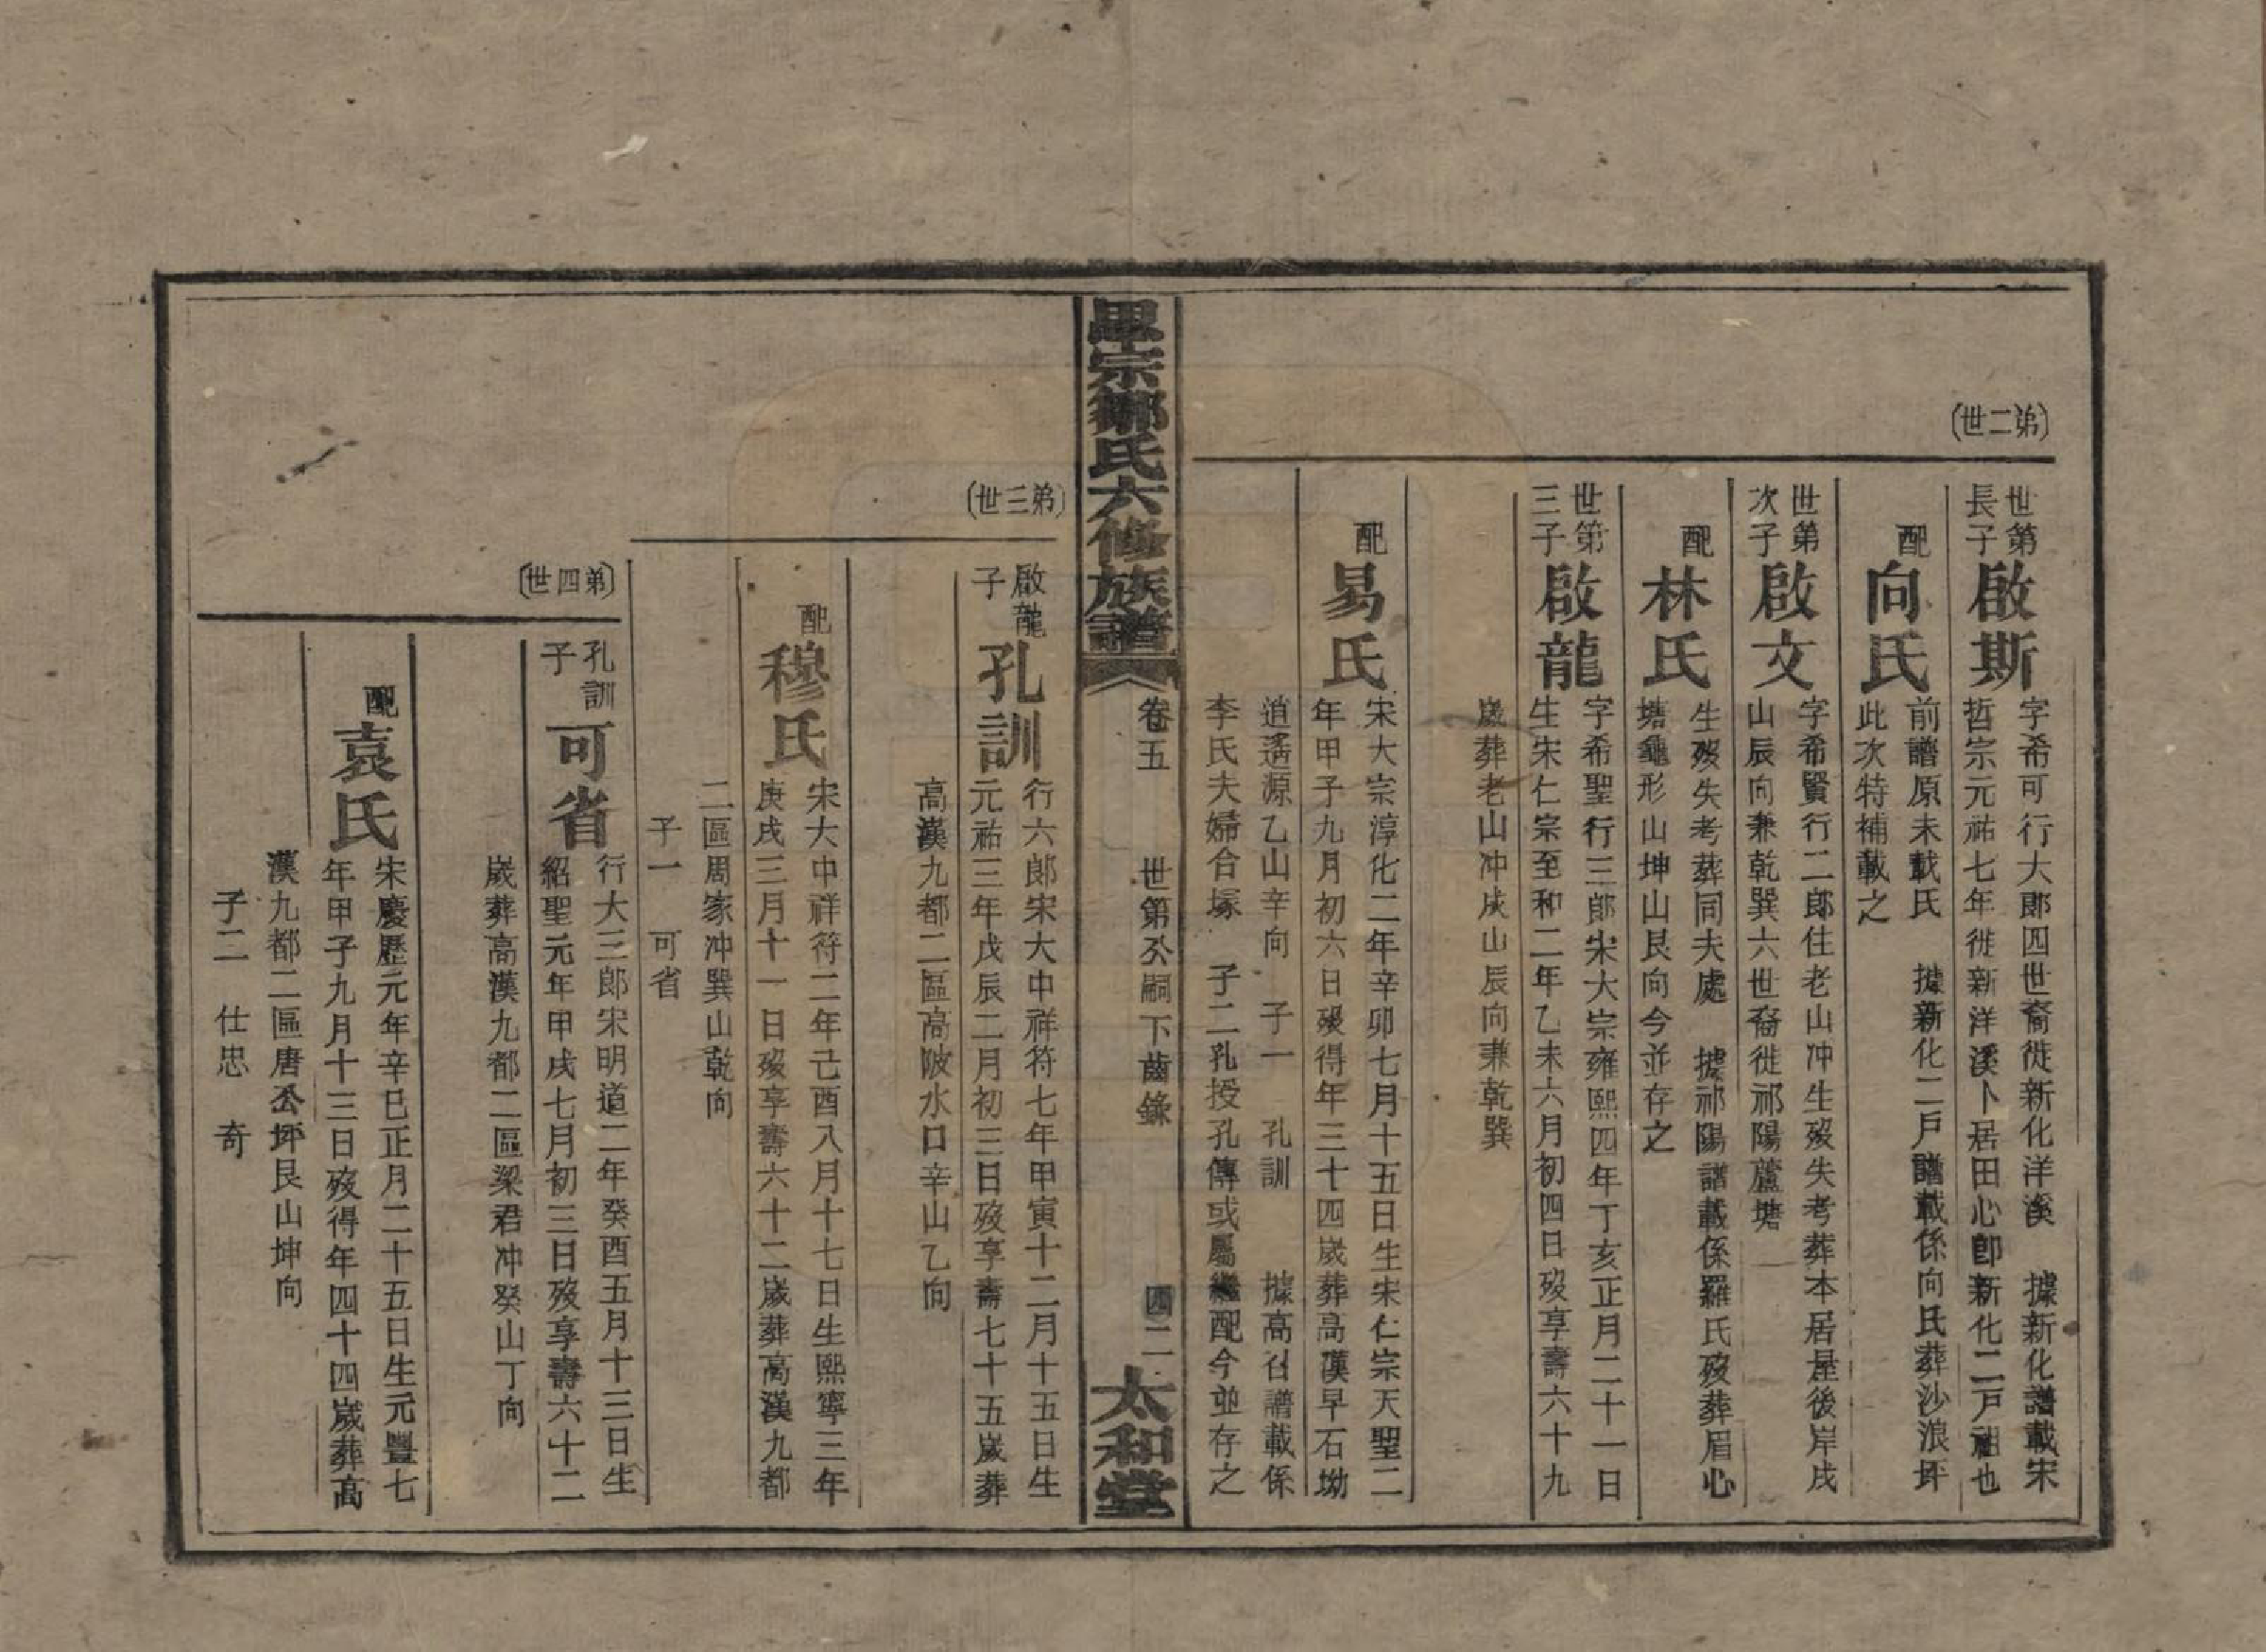 〔弟二世〕
世第
長子
啟斯
字希可行大郎四世裔徙新化洋溪　據新化譜載宋
哲宗元祐七年徙新洋溪卜居田心卽新化二戶祖也
配
向氏
前譜原未載氏　據新化二戶譜載係向氏葬沙浪坪
此次特補載之
世第
次子
啟文
字希賢行二郎住老山冲生歿失考葬本居屋後岸戌
山辰向兼乾巽六世裔徙祁陽蘆塘
配
林氏
生歿失考葬同夫處　據祁陽譜載係羅氏歿葬眉心
塘龜形山坤山艮向今並存之
世第
三子
啟龍
字希聖行三郎宋大宗雍熙四年丁亥正月二十一日
生宋仁宗至和二年乙未六月初四日歿享壽六十九
歲葬老山冲戌山辰向兼乾巽
配
易氏
宋大宗淳化二年辛卯七月十五日生宋仁宗天聖二
年甲子九月初六日歿得年三十四歲葬高漢早石坳
逍遙源乙山辛向　子一　孔訓　據高召譜載係
李氏夫婦合塚　子二孔授孔傳或屬繼配今並存之
思宗鄒氏六修族譜
卷五　世第公嗣下齒錄　四二
太和堂
〔弟三世〕
啟龍
子
孔訓
行六郎宋大中祥符七年甲寅十二月十五日生
元祐三年戊辰二月初三日歿享壽七十五歲葬
高漢九都二區高陂水口辛山乙向
配
穆氏
宋大中祥符二年己酉八月十七日生熙寧三年
庚戌三月十一日歿享壽六十二歲葬高漢九都
二區周家冲巽山乾向
子一　可省
〔弟四世〕
孔訓
子
可省
行大三郎宋明道二年癸酉五月十三日生
紹聖元年甲戌七月初三日歿享壽六十二
歲葬高漢九都二區梁君冲癸山丁向
配
袁氏
宋慶歷元年辛巳正月二十五日生元豐七
年甲子九月十三日歿得年四十四歲葬高
漢九都二區唐公坪艮山坤向
子二　仕忠　奇